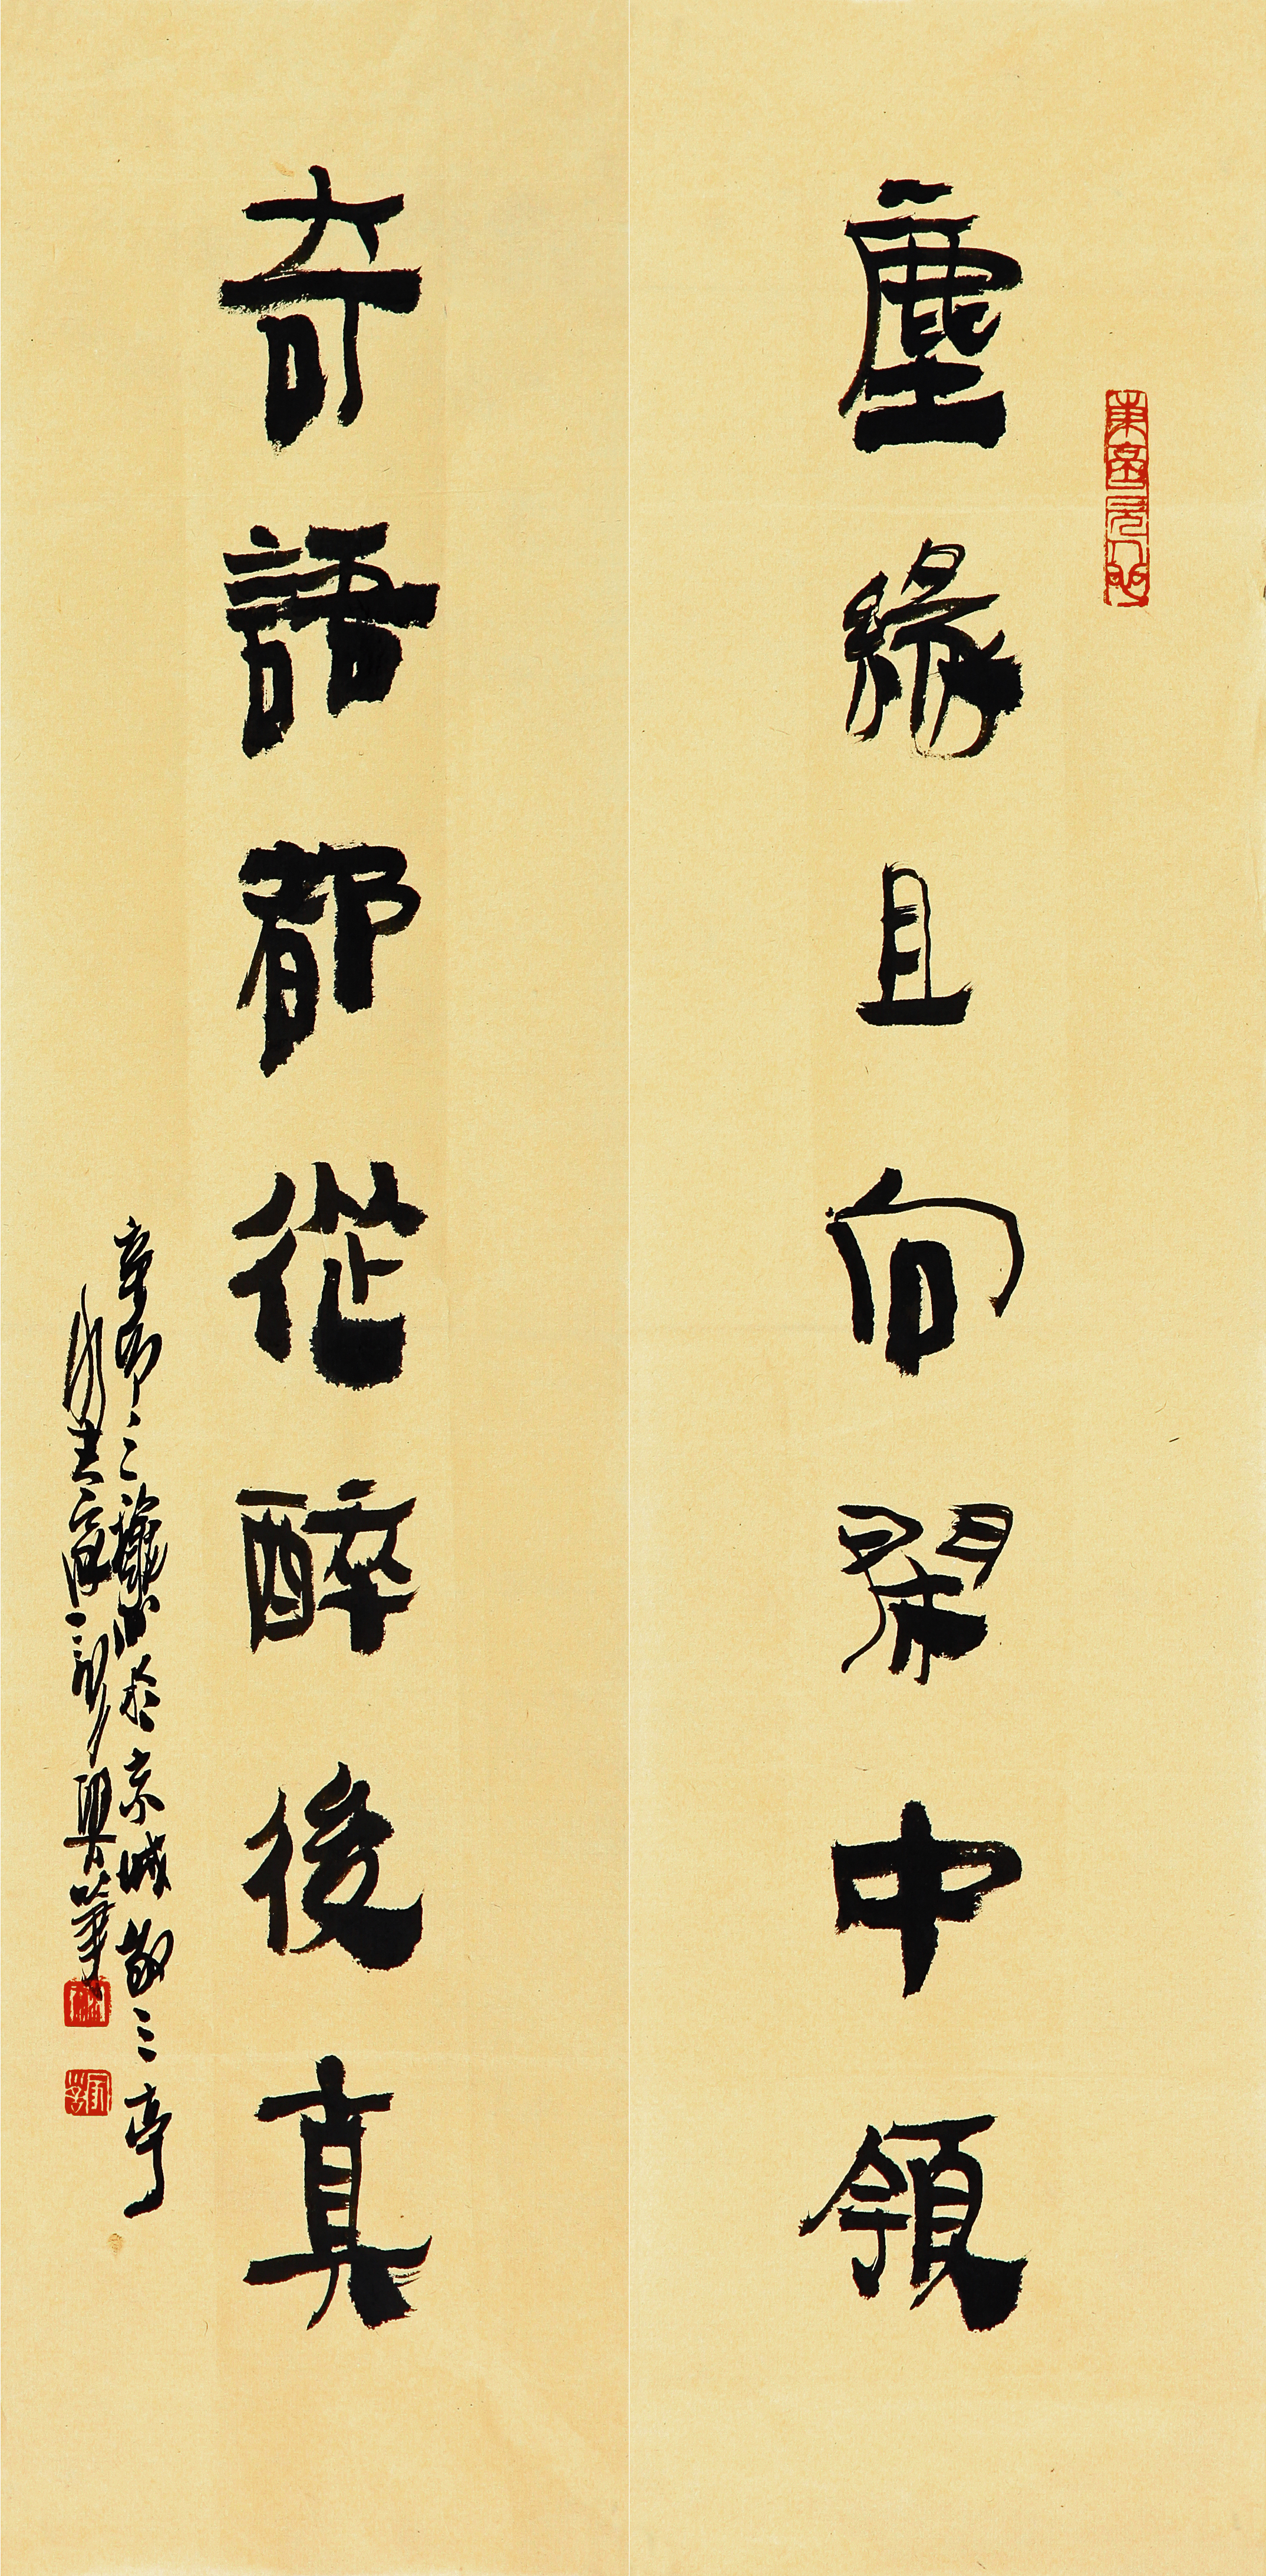 塵緣且向鬧中領
奇語都從醉後真
辛卯三秋於京城敬三亭